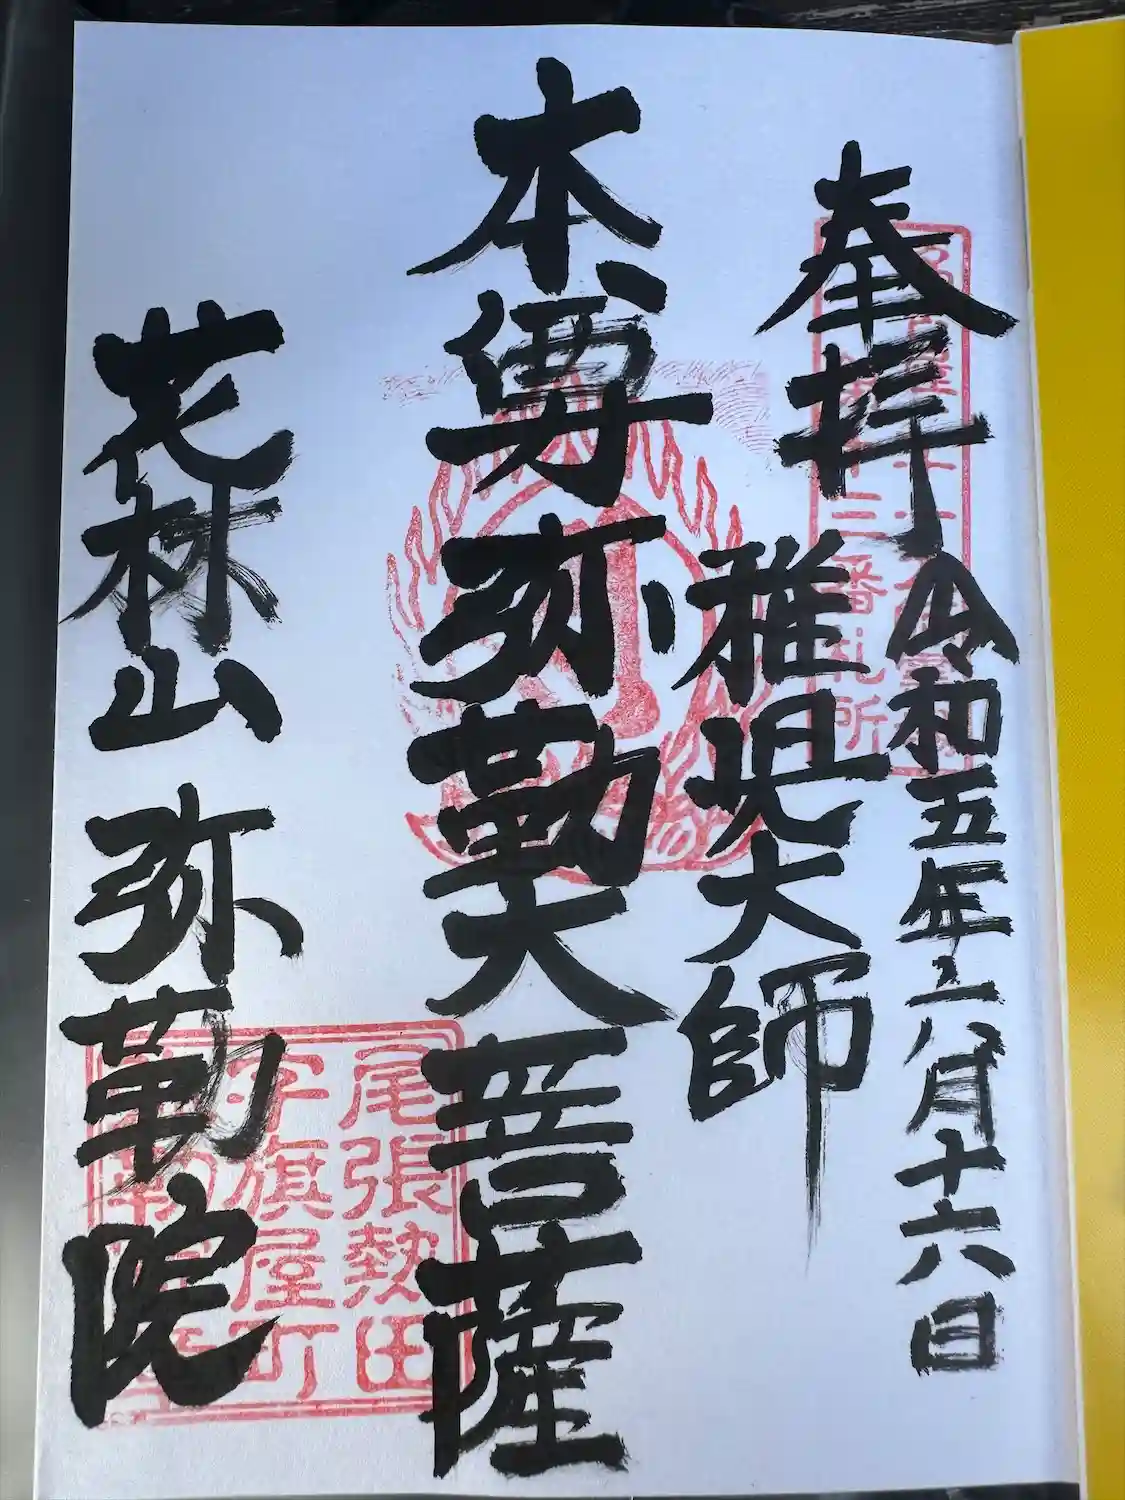 奉拝 令和五年六月十六日
稚児大師
本尊弥勒大菩薩
花林山 弥勒院
二番札所
尾張熱田
字旗屋町